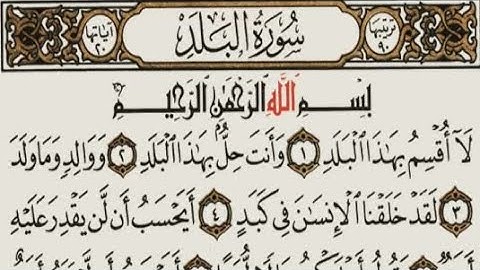 ترتيبها ٩٠ سُورَةُ البَلَدِ آياتها ٢٠
بِسْمِ ٱللَّهِ ٱلرَّحْمَٰنِ ٱلرَّحِيمِ
لَآ أُقْسِمُ بِهَٰذَا ٱلْبَلَدِ ١ وَأَنتَ حِلٌّۢ بِهَٰذَا ٱلْبَلَدِ ٢ وَوَالِدٍ وَمَا وَلَدَ
٣ لَقَدْ خَلَقْنَا ٱلْإِنسَٰنَ فِى كَبَدٍ ٤ أَيَحْسَبُ أَن لَّن يَقْدِرَ عَلَيْهِ